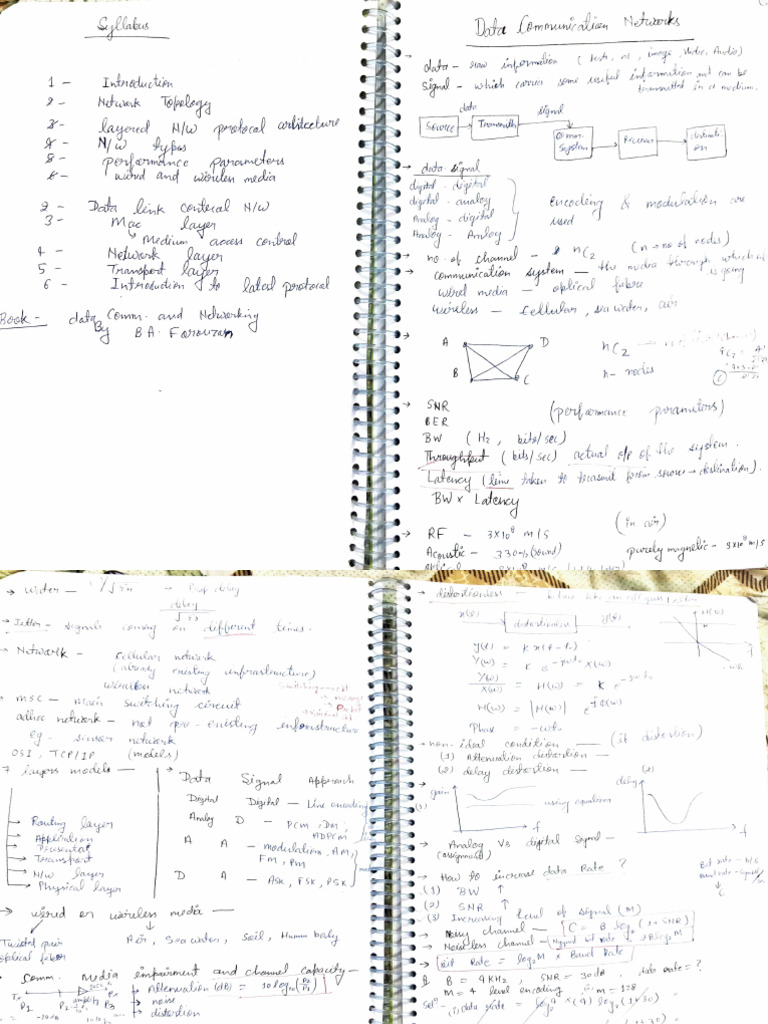 Syllabus
1 - Introduction
2 - Network Topology
3 - layered N/w protocal
4 - N/w types
5 - performance parameters
6 - wired and wireless media
2 - Data link conteral N/w
3 - Mac layer
Medium access control
4 - Network layer
5 - Transport layer
6 - Introduction to latest protocol
Book - data Comm. and Networking
By B.A. Forouzan
Data Communication Networks
→ data - raw information ( text, image, Audio)
signal - which carries some useful information and can be
transmitted in a medium.
data signal
Source Transmitt Comm. System Receiver
→ data signal
digital - digital
digital - analog
Analog - digital
Analog - Analog
encoding & modulation are
used
→ no. of channel - nC2 (n → no of nodes)
→ communication system - the media through which
is going
wired media - optical fabre
wireless - cellular, sea water, air
→ A D
B C
nC2
n - nodes
→ SNR (performance parameters)
BER
BW ( Hz , bits/sec)
Throughput ( bits/sec) actual o/p of the system.
Latency ( time taken to transmit form source → destination).
BW x Latency
(in air)
→ RF - 3x10⁸ m/s
Acoustic - 330 m/s (sound) purely magnetic - 3x10⁸ m/s
→ water - Prop delay
delay
→ Jetter - signals coming on different times.
→ Network - cellular network
(already existing infrastructure)
wireless network
→ MSC - Main switching circuit
adhoc network - not pre-existing infrastructure
eg - sensor network
OSI , TCP/IP (models)
7 layers models -
Routing layer
Application
Presentat
Transport
N/w layer
Physical layer
Data Signal Approach
Digital Digital - Line encoding
Analog D - PCM , DM,
ADPCM
A A - modulation, AM,
FM, PM
D A - ASK, FSK, PSK
→ wired or wireless media -
Twisted pair
optical faber
Air, Sea water, Soil, Human body
→ Comm. media impairment and channel capacity -
Attenuation (dB) = 10 log₁₀ (P2/P1)
noise
distortion
P1 P2 amplify P3
→ distortionless -
x(t) distortionless y(t) H(w)
y(t) = K x(t-t₀)
Y(w) = K e^-jwt₀ X(w)
Y(w)/X(w) = H(w) = K e^-jwt₀
H(w) = |H(w)|
Phase = -wt₀
non-ideal condition - (it distortion)
(1) Attenuation distortion -
(2) delay distortion -
gain f
delay f
→ Analog Vs digital signal -
(assignment)
→ How to increase data Rate ?
(1) BW ↑
(2) SNR ↑
(3) Increasing level of signal (M)
→ Noisy channel - C = B log₂ (1+SNR)
→ Noiseless channel - Nyquist bit Rate = 2B log₂M
→ Bit Rate = log₂M x Baud Rate
Q B = 4KHz , SNR = 30dB , data rate = ?
M = 4 level encoding , M = 128